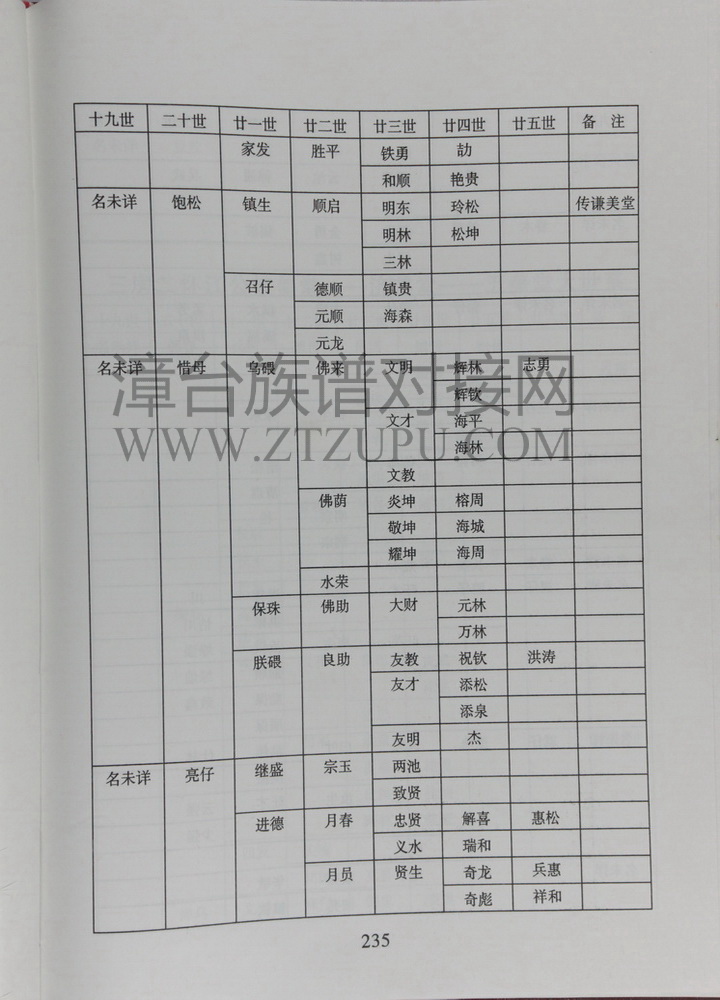 十九世 二十世 廿一世 廿二世 廿三世 廿四世 廿五世 备 注
家发 胜平 铁勇 劼
和顺 艳贵
名未详 饱松 镇生 顺启 明东 玲松 传谦美堂
明林 松坤
三林
召仔 德顺 镇贵
元顺 海森
元龙
名未详 惜母 乌碨 佛来 文明 辉林 志勇
辉钦
文才 海平
海林
文教
佛荫 炎坤 榕周
敬坤 海城
耀坤 海周
水荣
保珠 佛助 大财 元林
万林
朕碨 良助 友教 祝钦 洪涛
友才 添松
添泉
友明 杰
名未详 亮仔 继盛 宗玉 两池
致贤
进德 月春 忠贤 解喜 惠松
义水 瑞和
月员 贤生 奇龙 兵惠
奇彪 祥和
235
漳台族谱对接网
WWW.ZTZUPU.COM